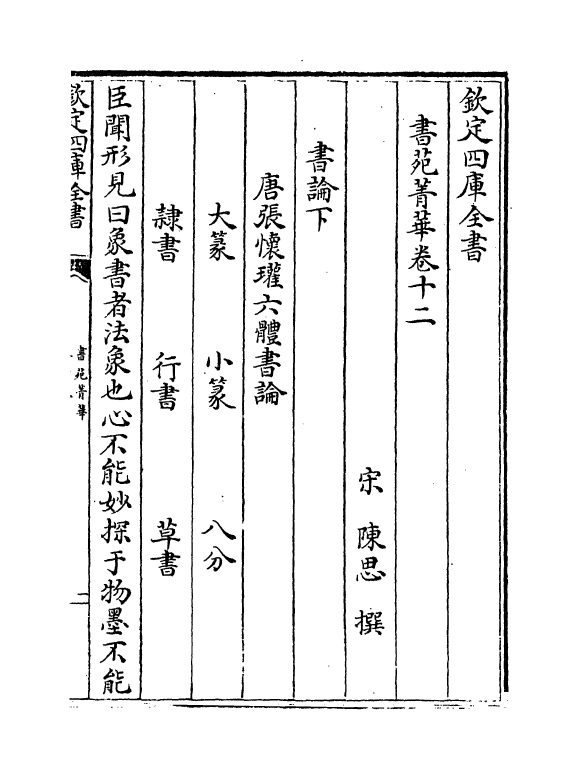 欽定四庫全書
書苑菁華卷十二
宋 陳思 撰
書論下
唐張懷瓘六體書論
大篆 小篆 八分
隸書 行書 草書
臣聞形見曰象書者法象也心不能妙探于物墨不能
欽定四庫全書
書苑菁華